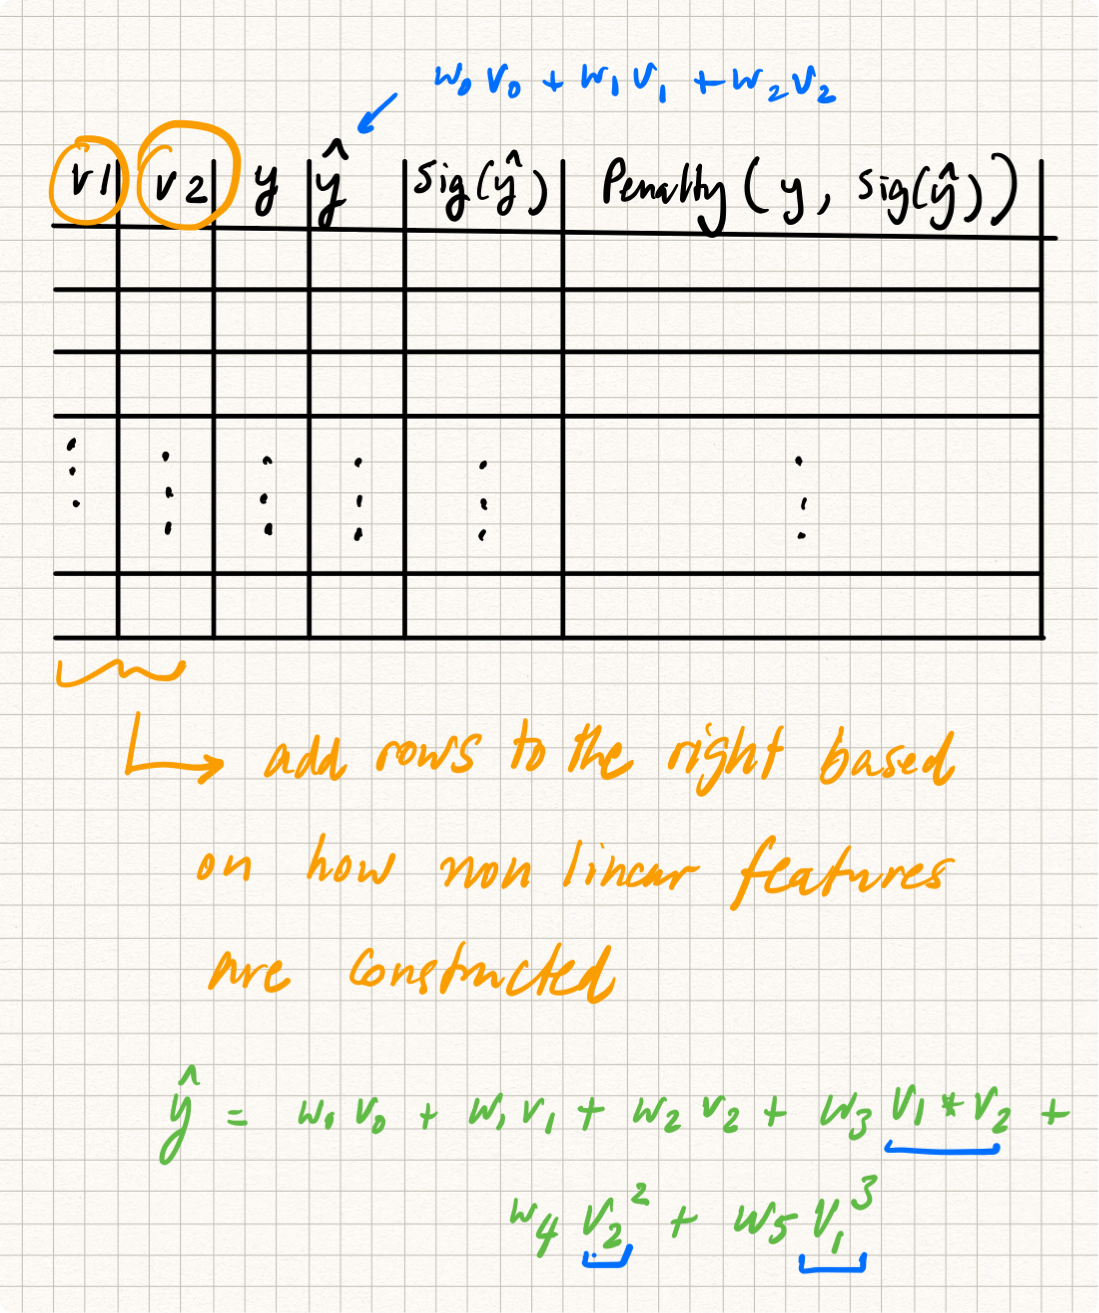 w₀ v₀ + w₁ v₁ + w₂ v₂
v1 v2 y ŷ sig(ŷ) Penalty ( y, sig(ŷ))
add rows to the right based
on how non linear features
are constructed
ŷ = w₀ v₀ + w₁ v₁ + w₂ v₂ + w₃ v₁ * v₂ +
w₄ v₂² + w₅ v₁³